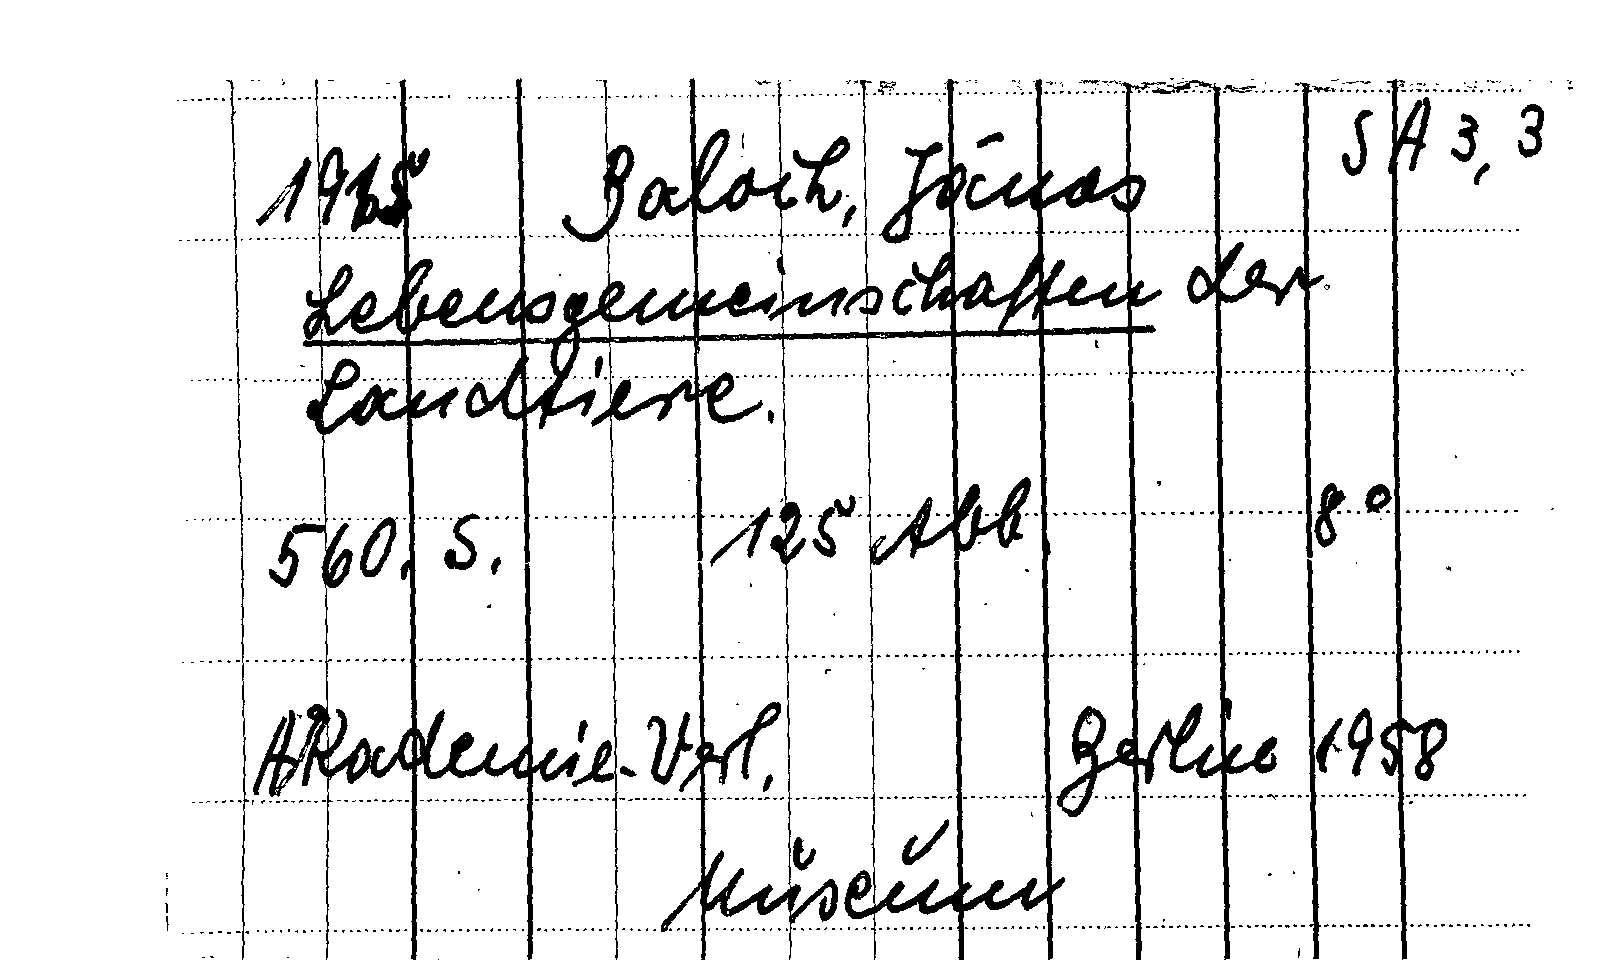 SA 3, 3
1965 Baloch, János
Lebensgemeinschaften der
Landtiere.
560. S. 125 Abb 8°
Akademie-Verl. Berlin 1958
Museum